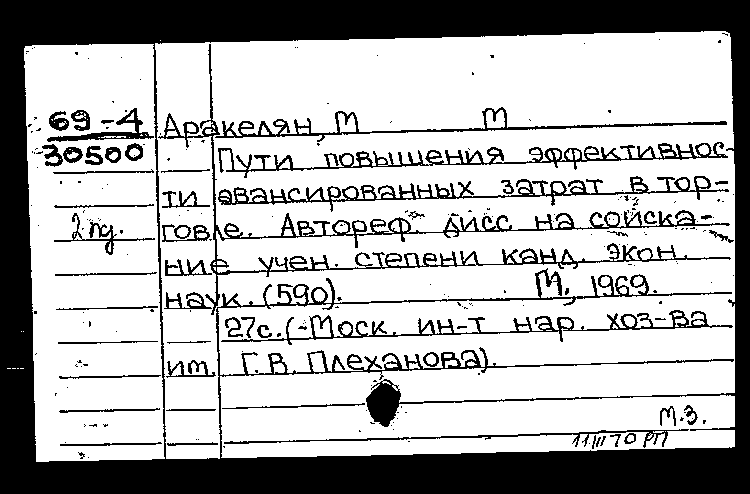 69-4
30500
2 пд.
Аракелян, М М
Пути повышения эффективнос-
ти авансированных затрат в тор-
говле. Автореф. дисс на соиска-
ние учен. степени канд. экон.
наук. (590). М., 1969.
27с. (Моск. ин-т нар. хоз-ва
им. Г. В. Плеханова).
М.З.
11/III 70 РП